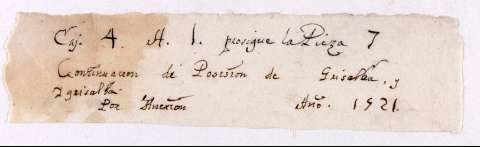 Caj. 4. A. 1. prosigue la Pieza 7
Continuacion de Posesion de Grisalba, y
Ygrisalba
Por Anexion Año. 1521.